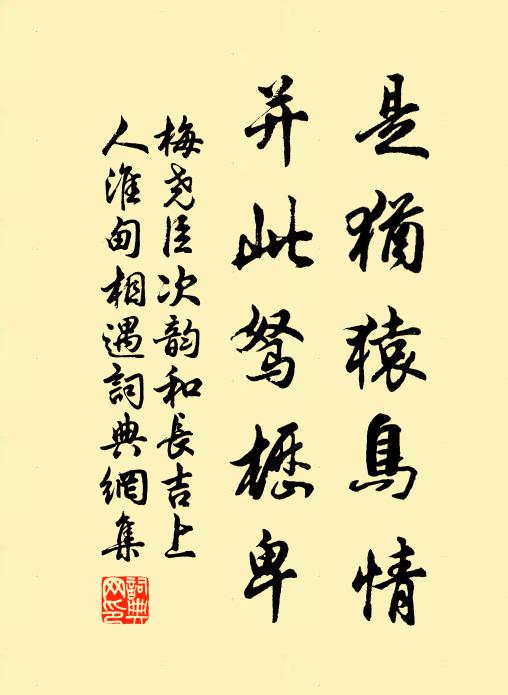 是猶猿鳥情
并此駑櫪卑
梅尧臣次韵和長吉上
人淮甸相遇詞典網集
詞典網印